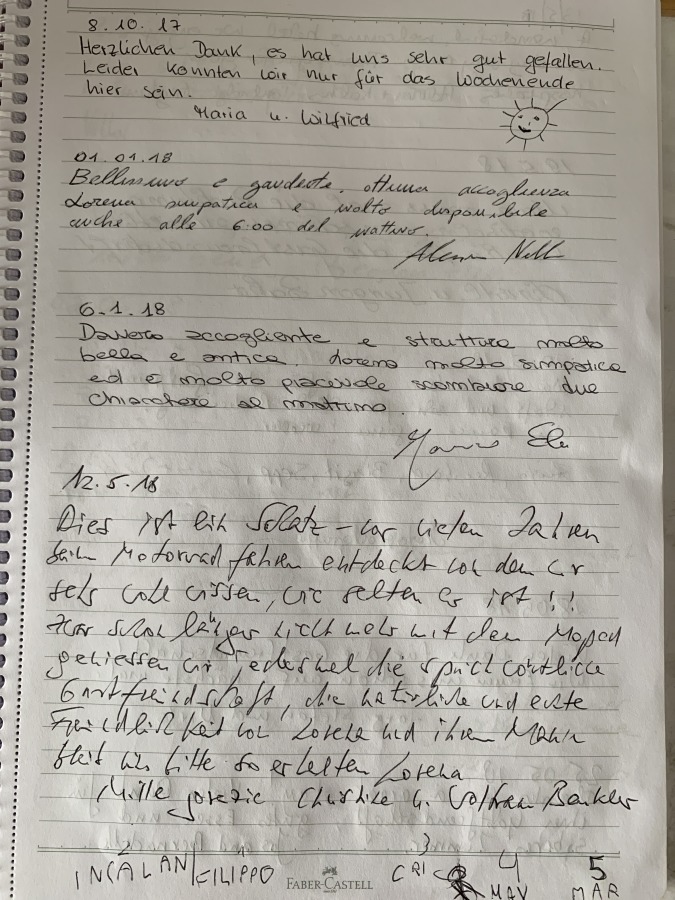 8.10.17
Herzlichen Dank, es hat uns sehr gut gefallen.
Leider konnten wir nur für das Wochenende
hier sein.
Maria u. Wilfried
01.01.18
Bellissimo e gaudente. Ottima accoglienza
Lorena simpatica e molto disponibile
anche alle 6:00 del mattino.
6.1.18
Davvero accogliente e struttura molto
bella e antica. Lorena molto simpatica
ed è molto piacevole scambiare due
chiacchere al mattino.
12.5.18
Dies ist ein Schatz - vor vielen Jahren
beim Motorrad fahren entdeckt von dem wir
sehr wohl wissen, wie selten er ist !!
Zwar schon länger nicht mehr mit dem Moped
geniessen wir jedesmal die sprichwörtliche
Gastfreundschaft, die natürliche und echte
Freundlichkeit von Lorena und ihrem Mann
bleib uns bitte so erhalten Lorena
Mille grazie Christine u. Wolfram
2 1 3 4 5
INCALAN/FILIPPO CRI MAV MAR
FABER-CASTELL